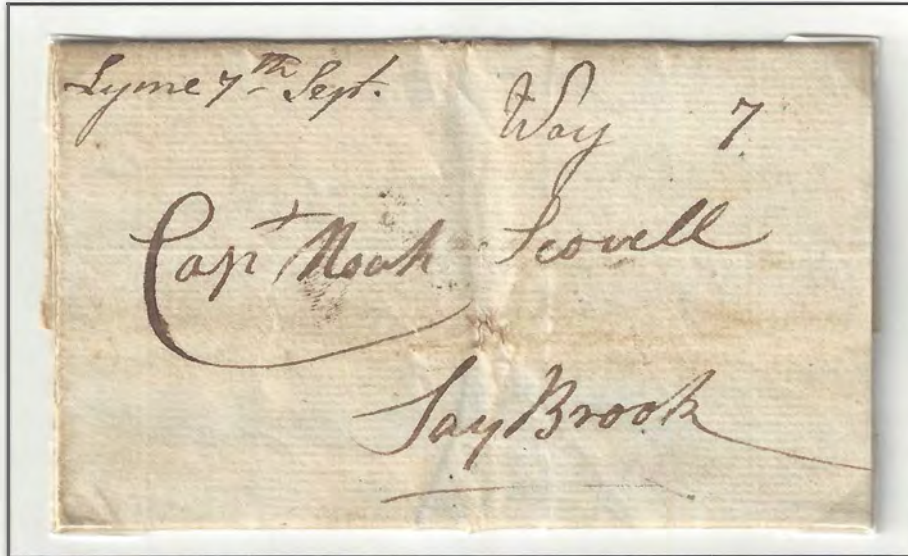 Lyme 7th Sept.
Way 7
Capt Noah Scovell
SayBrook